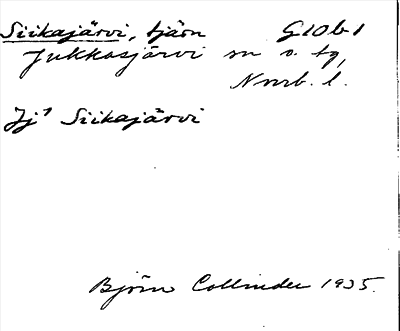 Siikajärvi, tjärn G10b1
Jukkasjärvi sn o. tg,
Nrrb. l.
Jj⁹ Siikajärvi
Björn Collinder 1935.